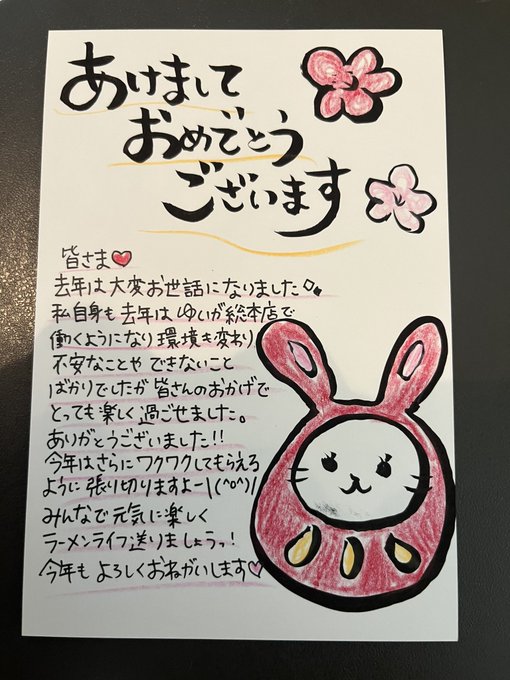 あけまして
おめでとう
ございます
皆さま♥
去年は大変お世話になりました
私自身も去年はゆいが総本店で
働くようになり環境も変わり
不安なことや できないこと
ばかりでしたが 皆さんのおかげで
とっても楽しく過ごせました。
ありがとうございました!!
今年はさらにワクワクしてもらえる
ように 張り切りますよー\(^o^)/
みんなで元気に楽しく
ラーメンライフ送りましょうっ!
今年も よろしくおねがいします♡